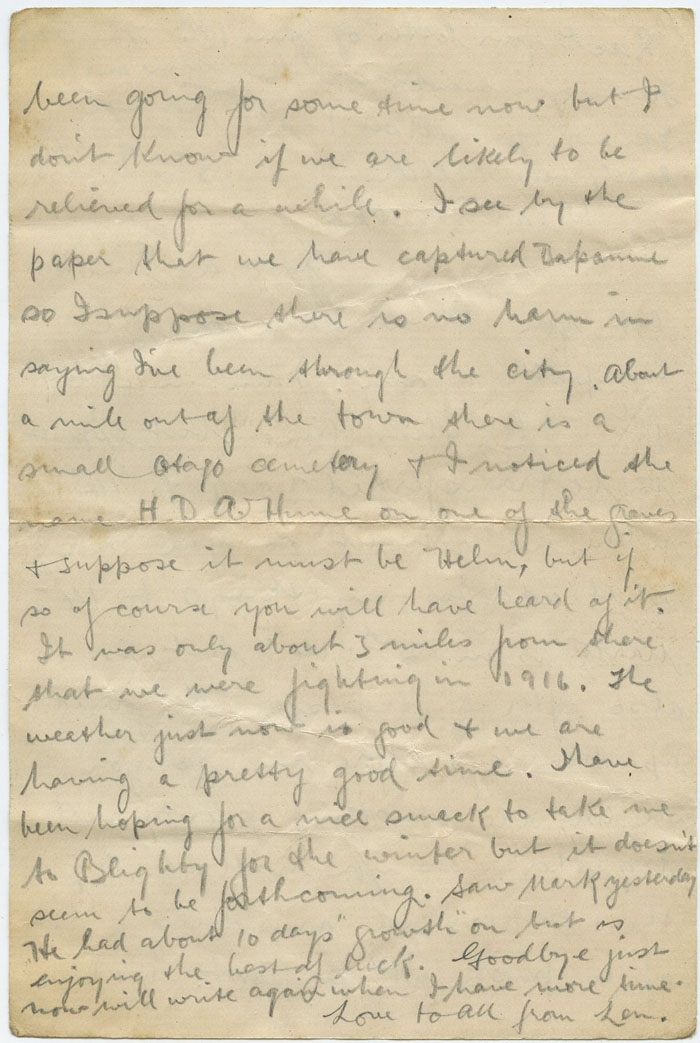 been going for some time now but I
don't know if we are likely to be
relieved for a while. I see by the
paper that we have captured Bapaume
so I suppose there is no harm in
saying I've been through the city. About
a mile out of the town there is a
small Otago cemetery & I noticed the
name H. D. A. Hume on one of the graves
& suppose it must be Helm, but if
so of course you will have heard of it.
It was only about 3 miles from there
that we were fighting in 1916. The
weather just now is good & we are
having a pretty good time. I have
been hoping for a nice smack to take me
to Blighty for the winter but it doesn't
seem to be forthcoming. Saw Mark yesterday
He had about 10 days "growth" on but is
enjoying the best of luck. Goodbye just
now will write again when I have more time.
Love to all from Len.